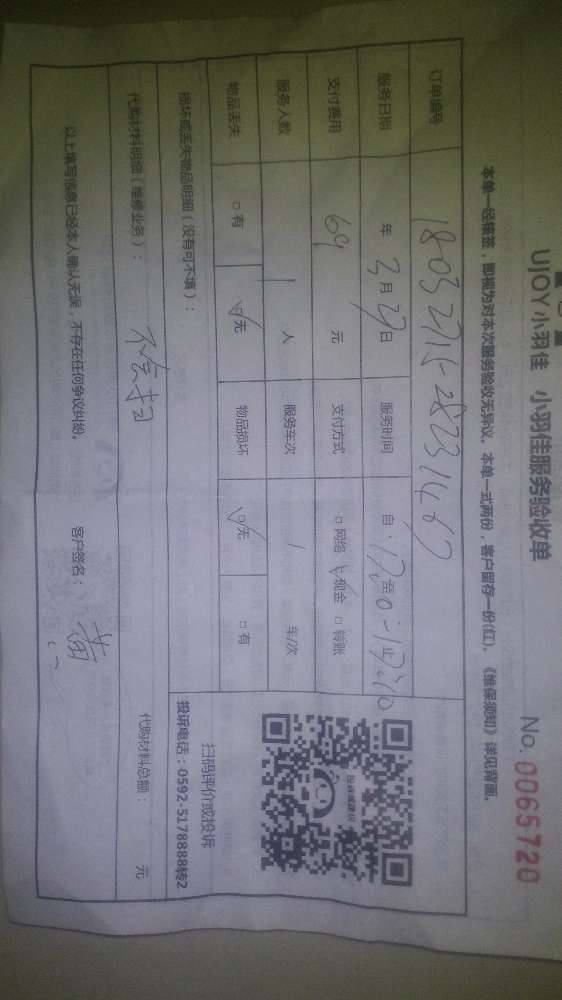 UJOY小羽佳 小羽佳服务验收单
No. 0065720
本单一经接签，即视为对本次服务验收无异议。本单一式两份，客户留存一份(红)。《维保须知》详见背面。
订单编号
服务日期 年 3月27日 服务时间 自 至 止
支付费用 69 元 支付方式 □网络 ☑现金 □转账
服务人数 1 人 服务车次 1 车/次
物品丢失 □有 ☑无 物品损坏 ☑无 □有
损坏或丢失物品明细（没有可不填）：
扫码评价或投诉
投诉电话：0592-5178888转2
代购材料明细（维修业务）： 不会扫 代购材料总额： 元
以上填写信息已经本人确认无误，不存在任何争议纠纷。 客户签名：